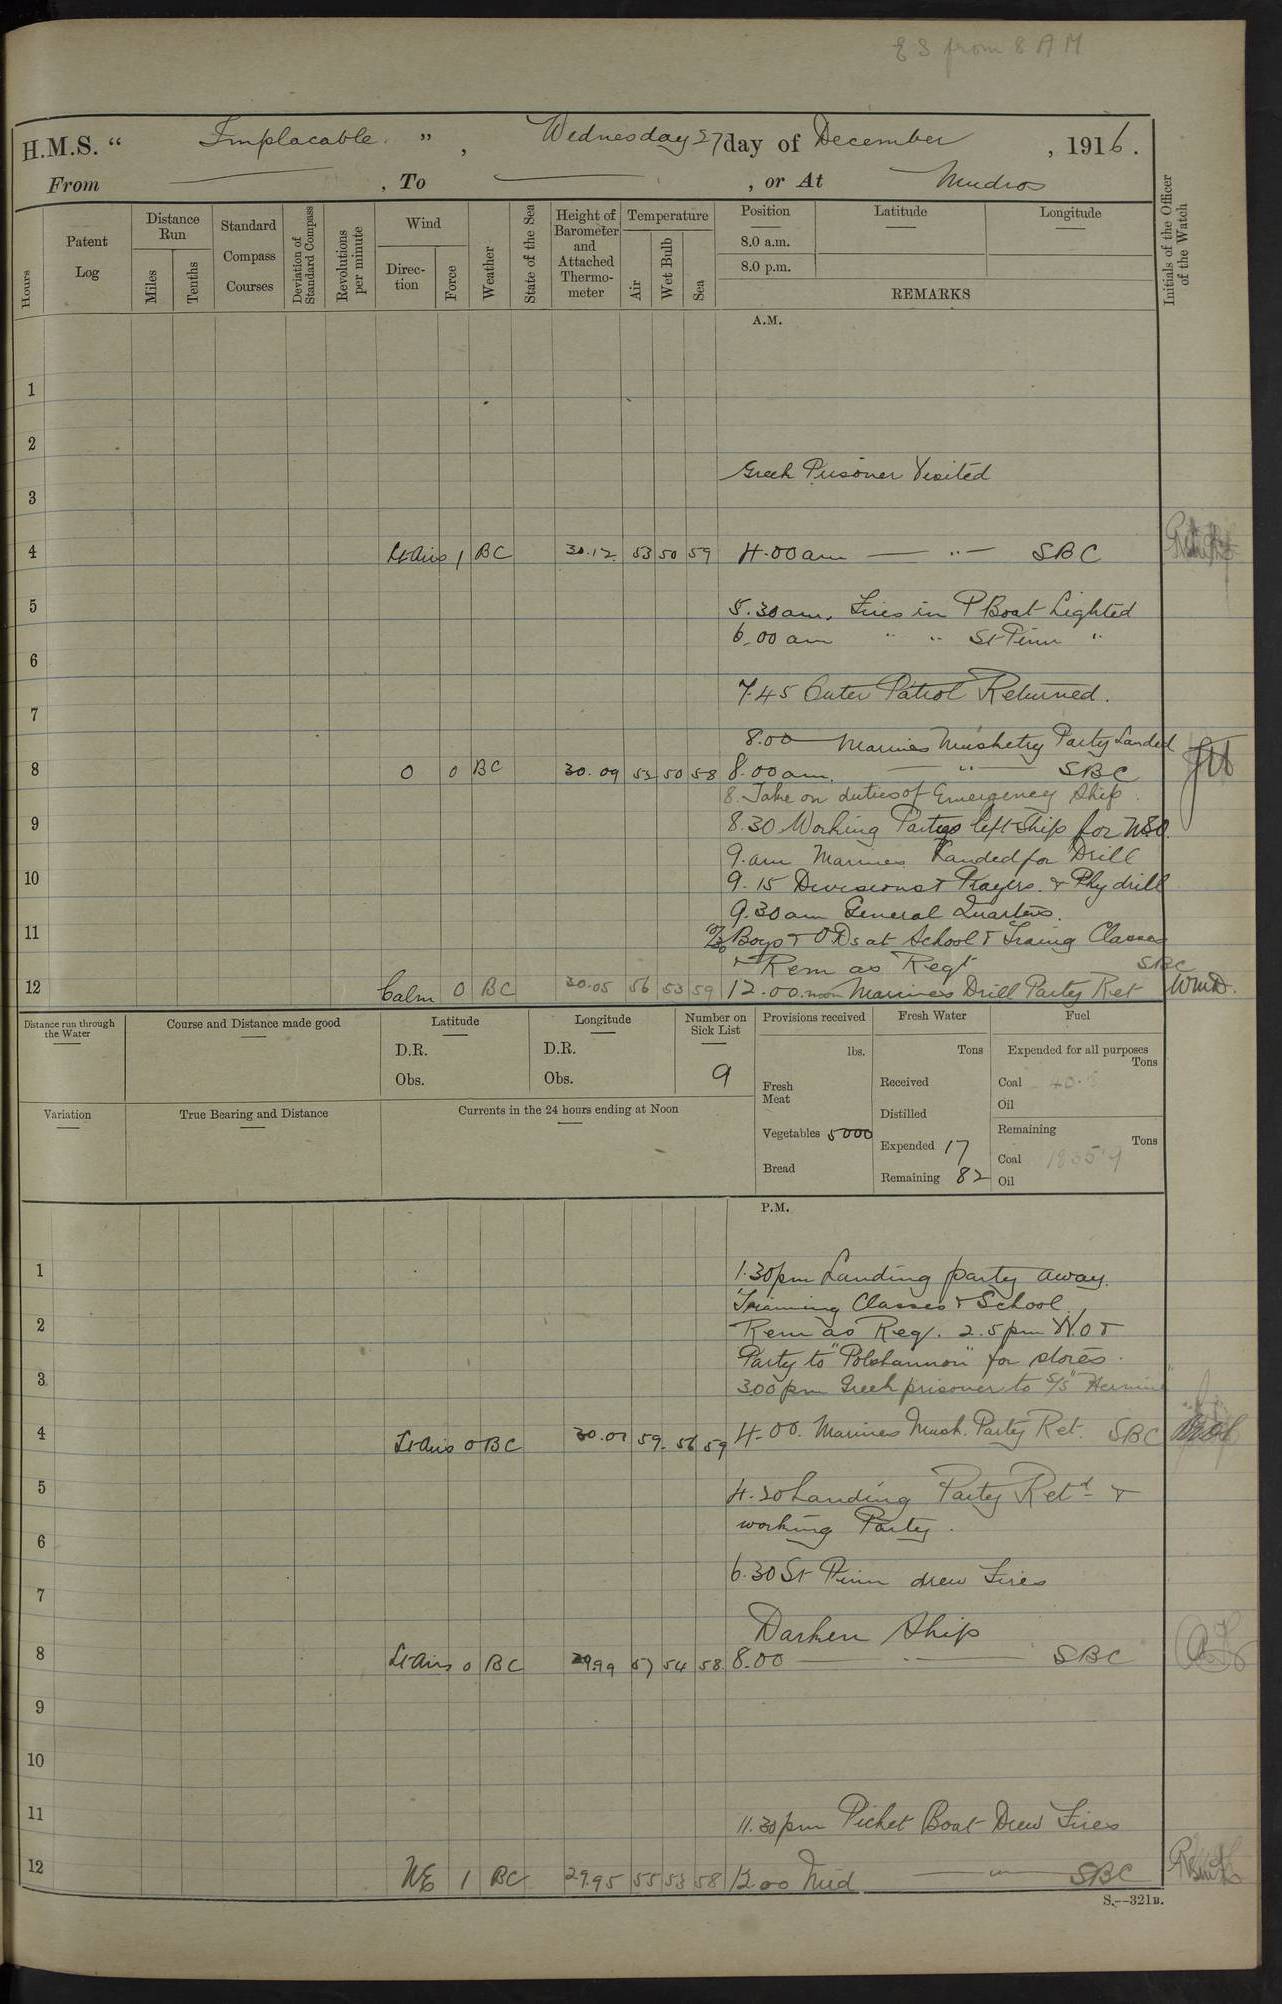 ES from 8 AM
H.M.S. “ Implacable ” , Wednesday 27 day of December , 1916.
From , To , or At Mudros
Hours
Patent Log
Distance Run
Miles
Tenths
Standard Compass Courses
Deviation of Standard Compass
Revolutions per minute
Wind
Direc- tion
Force
Weather
State of the Sea
Height of Barometer and Attached Thermo- meter
Temperature
Air
Wet Bulb
Sea
Position
8.0 a.m.
8.0 p.m.
Latitude
Longitude
REMARKS
Initials of the Officer of the Watch
A.M.
1
2
Greek Prisoner Visited
3
4 Lt Airs 1 BC 30.12 53 50 59 4.00 am — " — SBC
5 5.30 am. Fires in P Boat Lighted
6.00 am " " St Pinn "
6
7.45 Outer Patrol Returned.
7
8.00 Marines Musketry Party Landed
8 0 0 BC 30.09 52 50 58 8.00 am. — " — SBC
8. Take on duties of Emergency Ship.
9 8.30 Working Parties left Ship for NSO.
9. am Marines Landed for Drill
10 9.15 Divisions & Prayers. & Phy drill
9.30 am General Quarters.
11 Boys & ODs at School & Traing Classes
& Rem as Reqt SBC
12 Calm 0 BC 30.05 56 53 59 12.00. noon Marines Drill Party Ret WmD.
Distance run through the Water
Course and Distance made good
Latitude
D.R.
Obs.
Longitude
D.R.
Obs.
Number on Sick List
9
Provisions received
lbs.
Fresh Meat
Vegetables 5000
Bread
Fresh Water
Tons
Received
Distilled
Expended 17
Remaining 82
Fuel
Expended for all purposes
Tons
Coal
Oil
Remaining
Tons
Coal
Oil
Variation
True Bearing and Distance
Currents in the 24 hours ending at Noon
P.M.
1 1.30 pm Landing party away.
Training Classes & School
2 Rem as Req. 2.5 pm N.O &
Party to "Polshannon" for stores.
3 3.00 pm Greek prisoner to S/S "Hermine"
4 Lt Airs 0 BC 30.01 59 56 59 4.00. Marines Musk. Party Ret. SBC
5 4.30 Landing Party Retd &
working Party.
6
6.30 St Pinn drew Fires
7
Darken Ship
8 Lt Airs 0 BC 29.99 57 54 58 8.00 — " — SBC
9
10
11 11.30 pm Picket Boat Drew Fires
12 NE 1 BC 29.95 55 53 58 12.00 Mid — " — SBC
S.—321B.